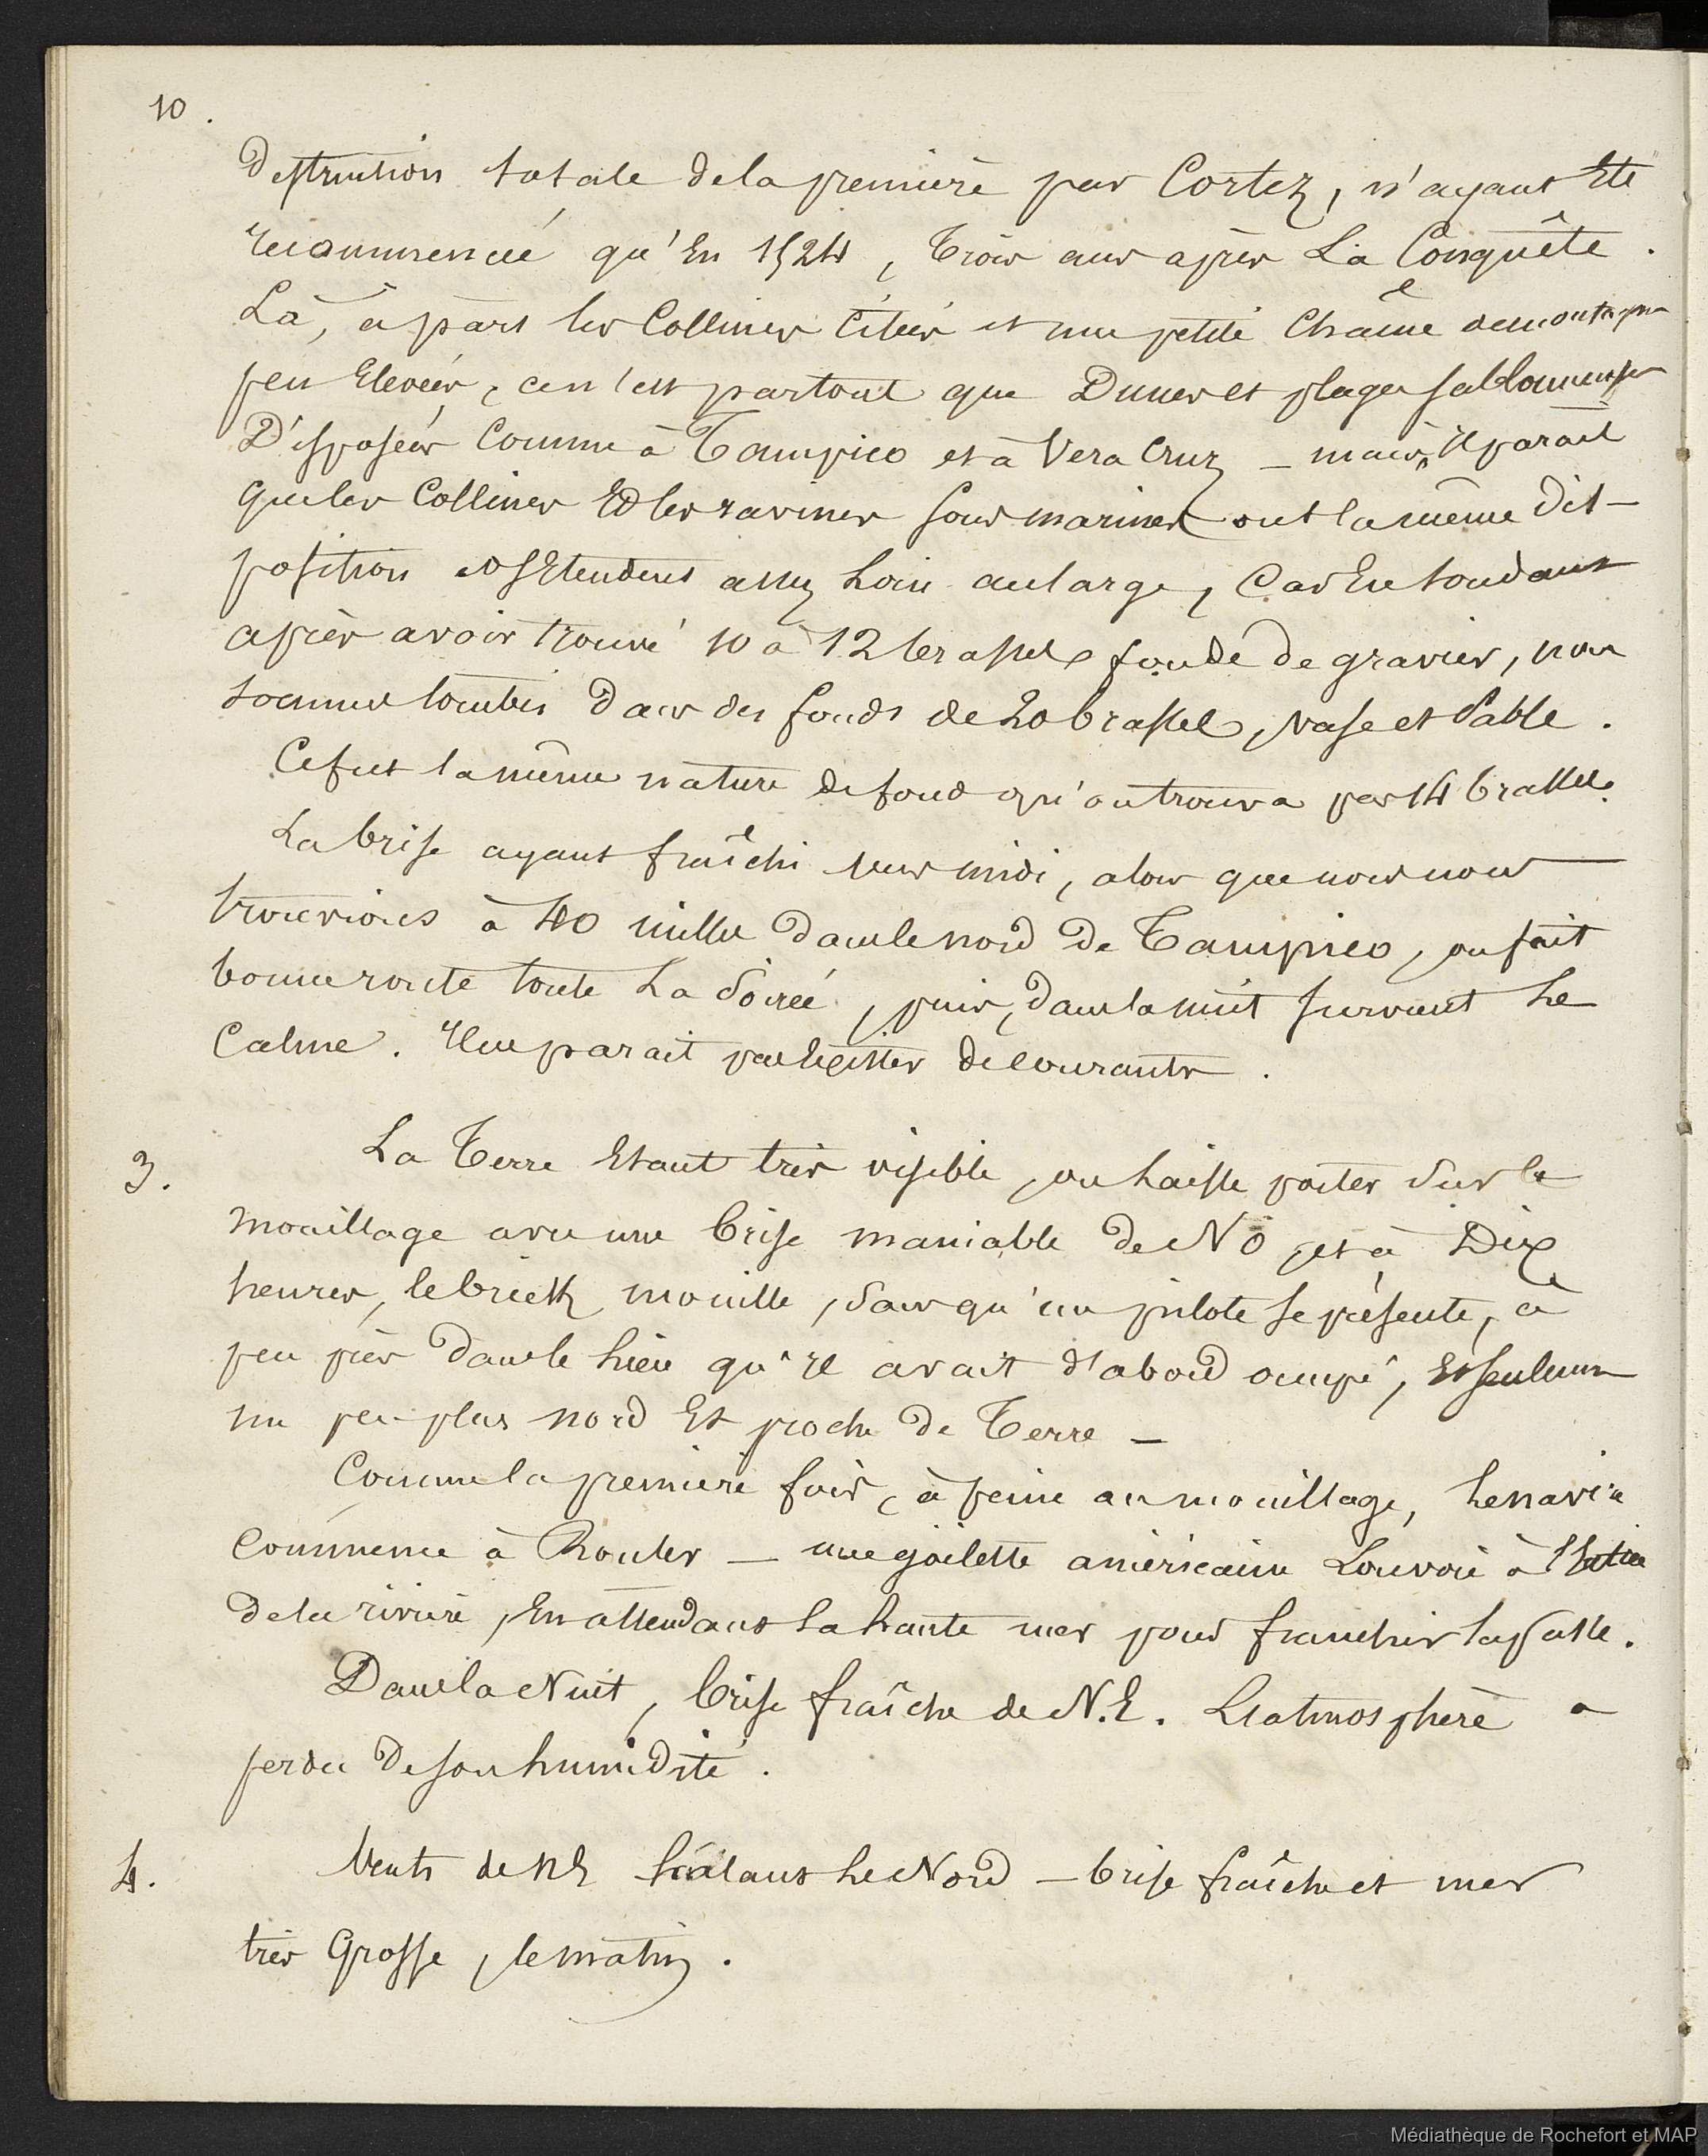 10.
Destruction totale de la première par Cortez, n'ayant Eté
recommencée qu'En 1524, Trois ans après La Conquête.
Là, à part les Collines Citées et une petite Chaîne de montagnes
peu Elevées, ce n'est partout que Dunes et plages sablonneuses
Disposées Comme à Tampico et à Vera Cruz _ mais, Il paraît
que les Collines Et les ravines sous marines ont la même Dis-
position et s'Etendent assez Loin au large, Car En sondant
après avoir trouvé 10 à 12 brasses fonds de gravier, nous
sommes tombés Dans des fonds de 20 brasses, vase et Sable.
Ce fut la même nature de fond qu'on trouva par 14 brasses.
La brise ayant fraîchi vers midi, alors que nous nous
trouvions à 40 milles Dans le nord De Tampico, on fait
bonne route toute La Soirée, puis, Dans la nuit survient Le
Calme. Il ne parait pas Exister de courants.
3.
La Terre Etant très visible, on Laisse porter Sur le
mouillage avec une brise maniable de NO, et à Dix
heures, le brick mouille, Sans qu'un pilote se présente, à
peu près Dans le Lieu qu'Il avait d'abord occupé, Et seulement
un peu plus nord Et proche De Terre _
Comme la première fois, à peine au mouillage, Le navire
Commence à Rouler _ une goëlette américaine Louvoie à
de la rivière, En attendant La haute mer pour franchir la passe.
Dans la Nuit, brise fraîche de N.E. L'atmosphère a
perdu De son humidité.
4.
Vents de NE hâlant Le Nord _ brise fraîche et mer
très Grosse, le matin.
Médiathèque de Rochefort et MAP